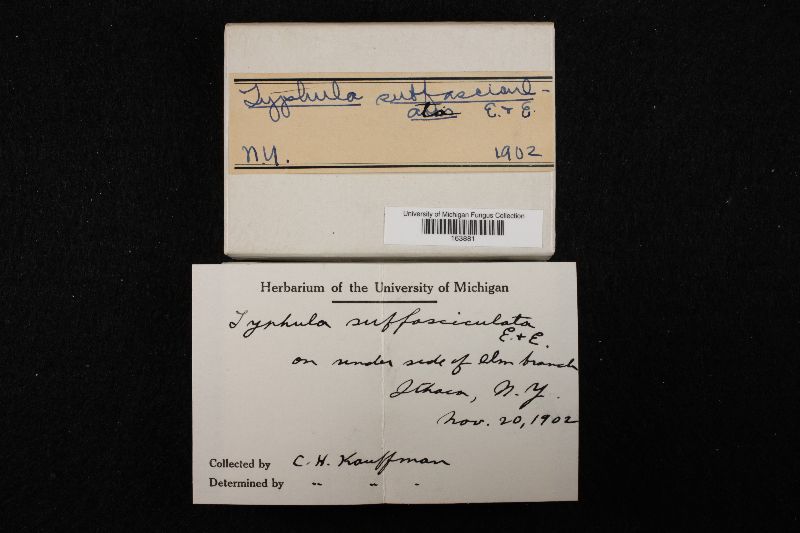 Typhula suffascicul-
atas E. & E.
N.Y. 1902
University of Michigan Fungus Collection
163881
Herbarium of the University of Michigan
Typhula suffasciculata
E. & E.
on under side of elm branch
Ithaca, N.Y.
Nov. 20, 1902
Collected by C. H. Kauffman
Determined by " " "